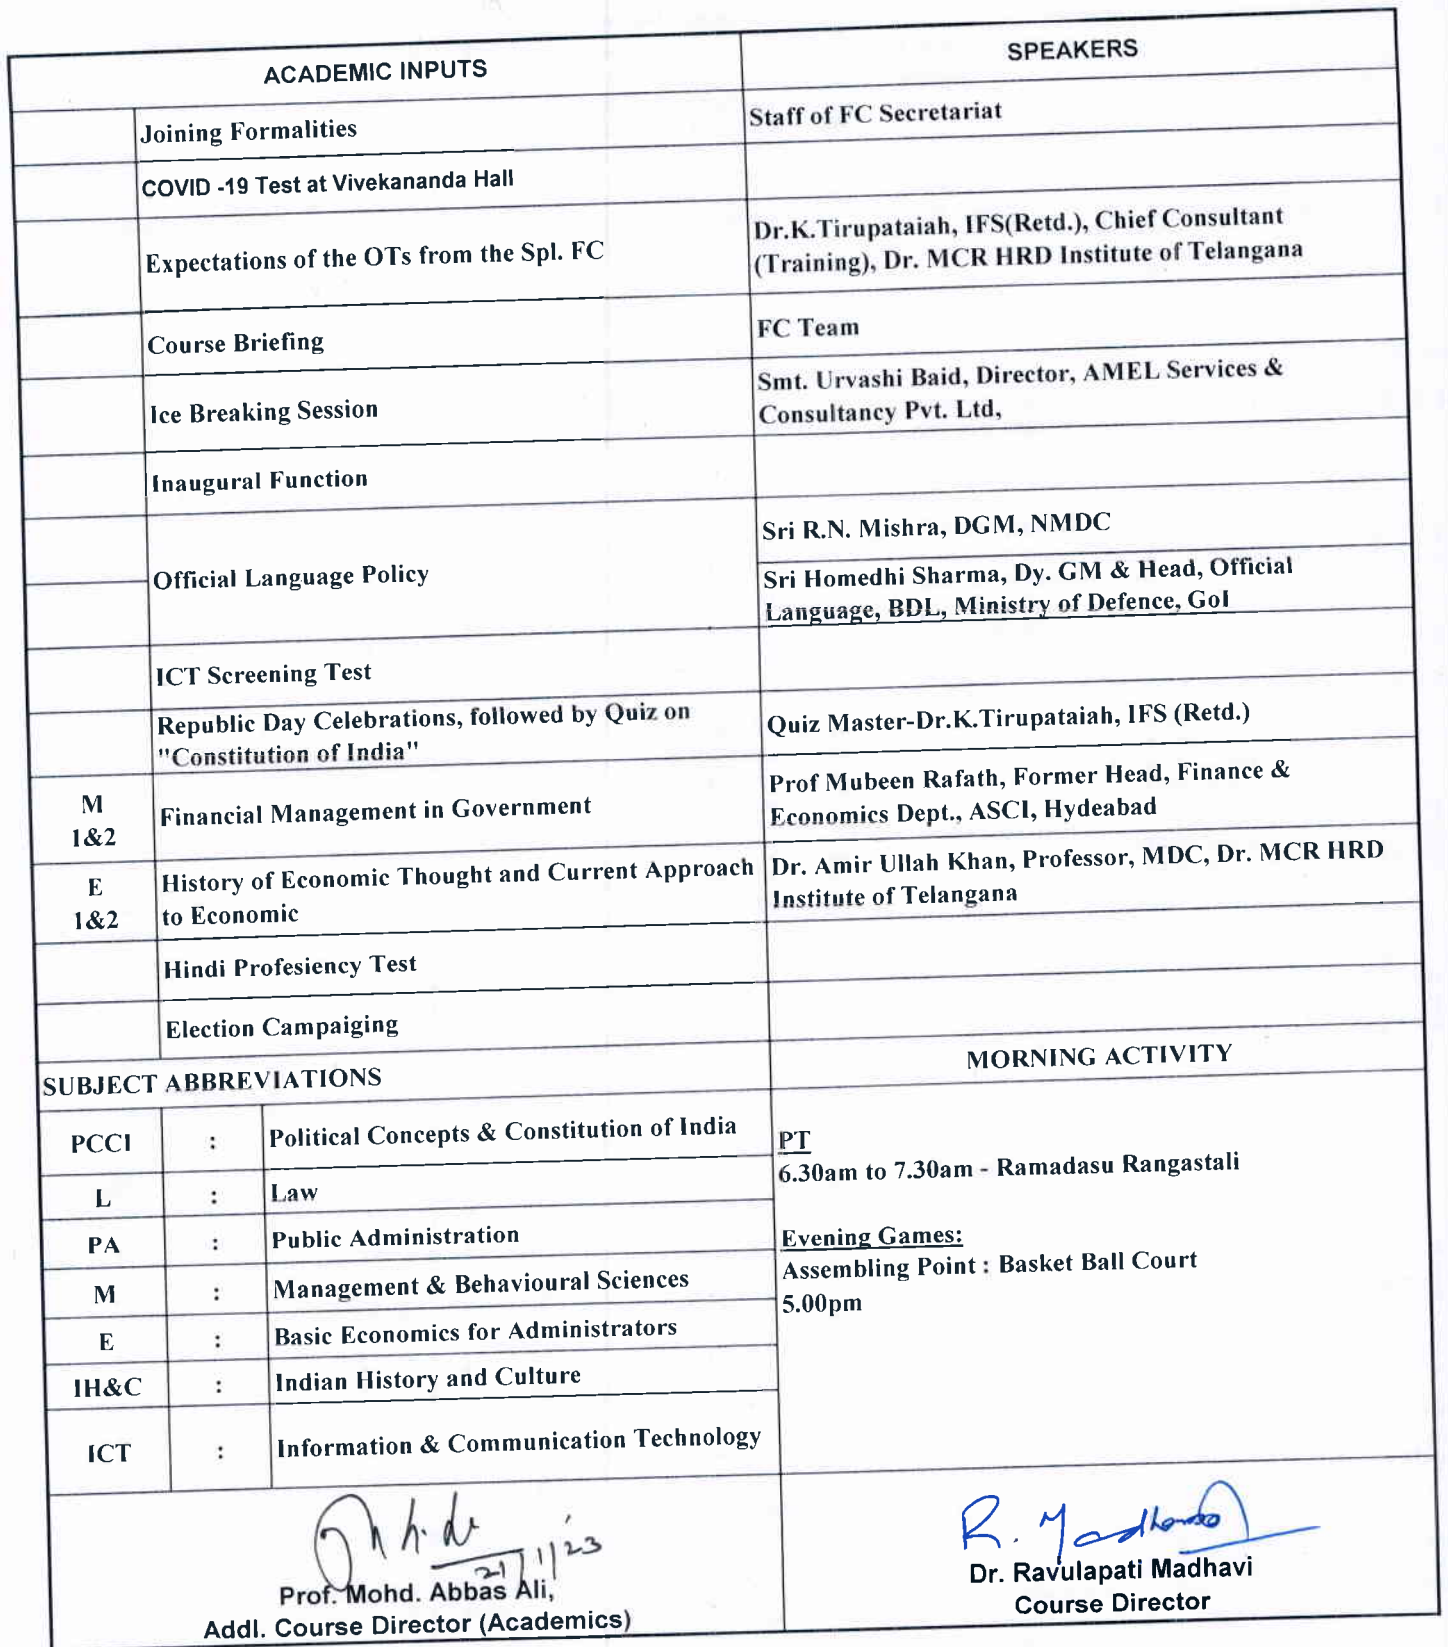 ACADEMIC INPUTS
SPEAKERS
Joining Formalities
Staff of FC Secretariat
COVID -19 Test at Vivekananda Hall
Expectations of the OTs from the Spl. FC
Dr.K.Tirupataiah, IFS(Retd.), Chief Consultant
(Training), Dr. MCR HRD Institute of Telangana
Course Briefing
FC Team
Ice Breaking Session
Smt. Urvashi Baid, Director, AMEL Services &
Consultancy Pvt. Ltd,
Inaugural Function
Official Language Policy
Sri R.N. Mishra, DGM, NMDC
Sri Homedhi Sharma, Dy. GM & Head, Official
Language, BDL, Ministry of Defence, GoI
ICT Screening Test
Republic Day Celebrations, followed by Quiz on
"Constitution of India"
Quiz Master-Dr.K.Tirupataiah, IFS (Retd.)
M
1&2
Financial Management in Government
Prof Mubeen Rafath, Former Head, Finance &
Economics Dept., ASCI, Hydeabad
E
1&2
History of Economic Thought and Current Approach
to Economic
Dr. Amir Ullah Khan, Professor, MDC, Dr. MCR HRD
Institute of Telangana
Hindi Profesiency Test
Election Campaiging
SUBJECT ABBREVIATIONS
MORNING ACTIVITY
PCCI : Political Concepts & Constitution of India
L : Law
PA : Public Administration
M : Management & Behavioural Sciences
E : Basic Economics for Administrators
IH&C : Indian History and Culture
ICT : Information & Communication Technology
PT
6.30am to 7.30am - Ramadasu Rangastali
Evening Games:
Assembling Point : Basket Ball Court
5.00pm
21/1/23
Prof. Mohd. Abbas Ali,
Addl. Course Director (Academics)
R. Madhavi
Dr. Ravulapati Madhavi
Course Director